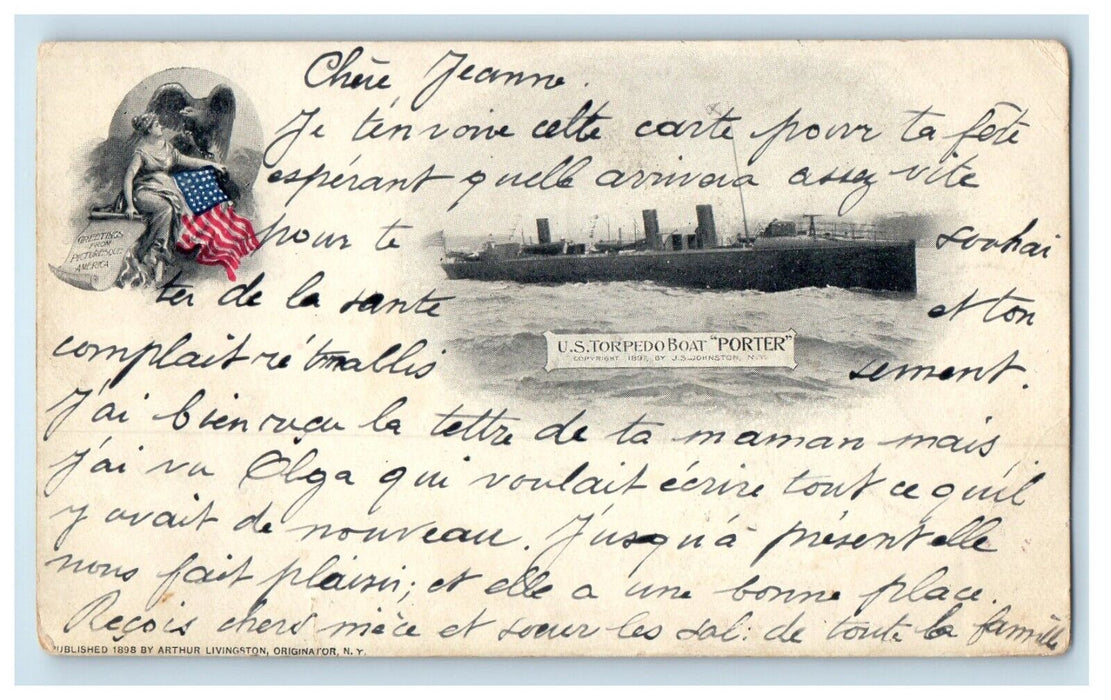 Chère Jeanne.
Je t'envoie cette carte pour ta fête
espérant quelle arrivera assez vite
pour te souhai
ter de la sante et ton
complait ré tablis sement.
J'ai bien reçu la lettre de ta maman mais
j'ai vu Olga qui voulait écrire tout ce qu'il
y avait de nouveau. Jusqu'à présent elle
nous fait plaisir; et elle a une bonne place.
Reçois chère nièce et soeur les sal: de toute la famille
GREETINGS
FROM
PICTURESQUE
AMERICA
U.S. TORPEDO BOAT "PORTER"
COPYRIGHT 1897, BY J.S. JOHNSTON, N.Y.
PUBLISHED 1898 BY ARTHUR LIVINGSTON, ORIGINATOR, N.Y.